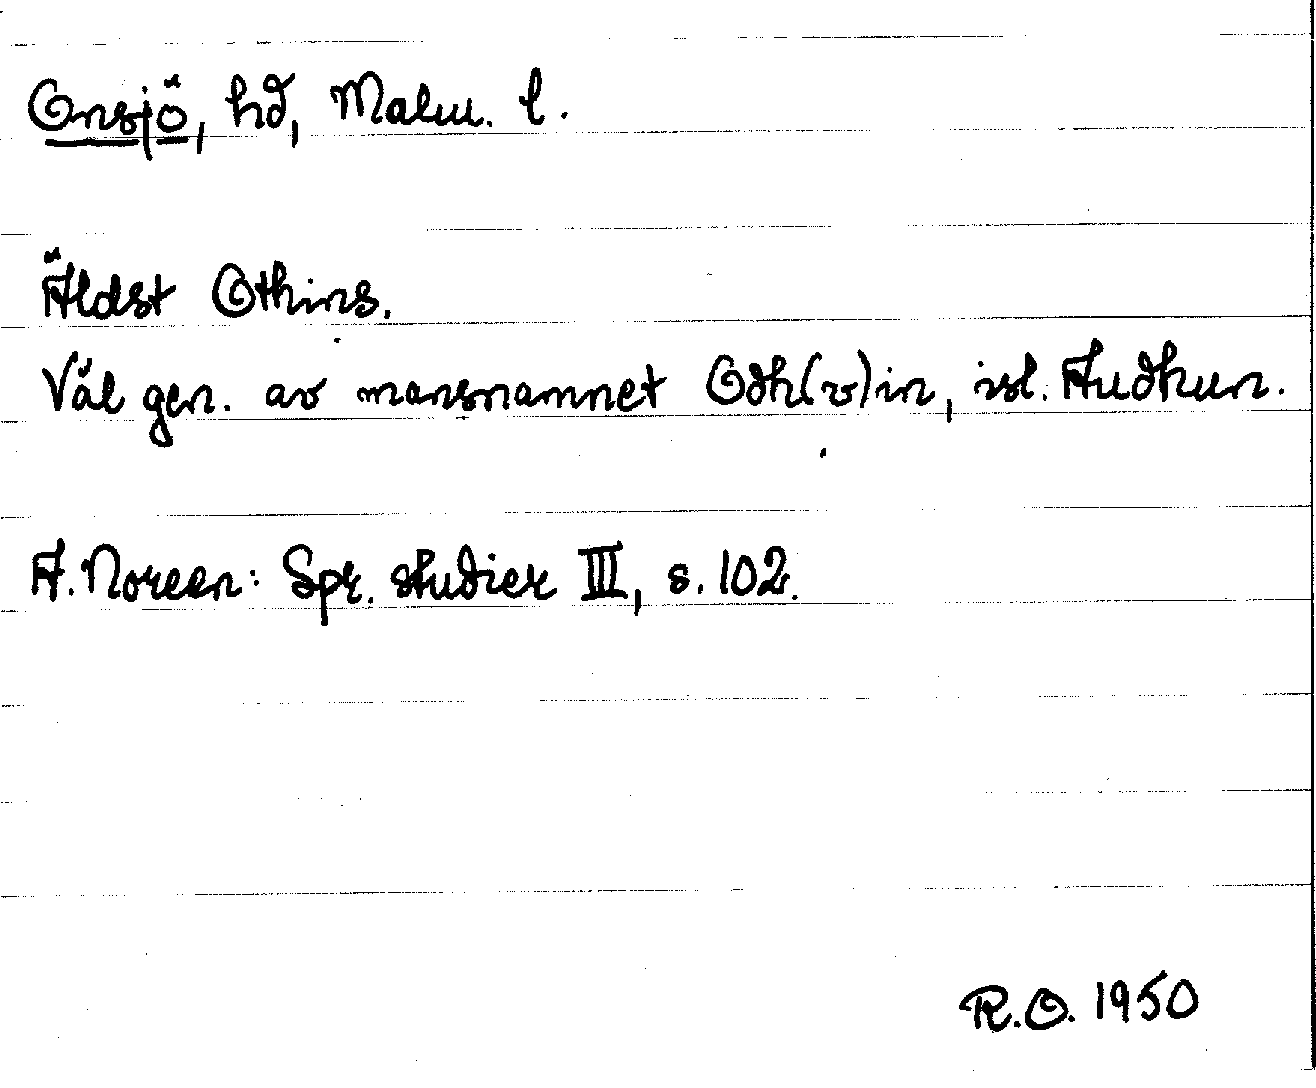 Onsjö, hd, Malm. l.
Äldst Othins.
Väl gen. av mansnamnet Odh(v)in, isl. Audhun.
A. Noreen: Spr. studier III, s. 102.
R.O. 1950